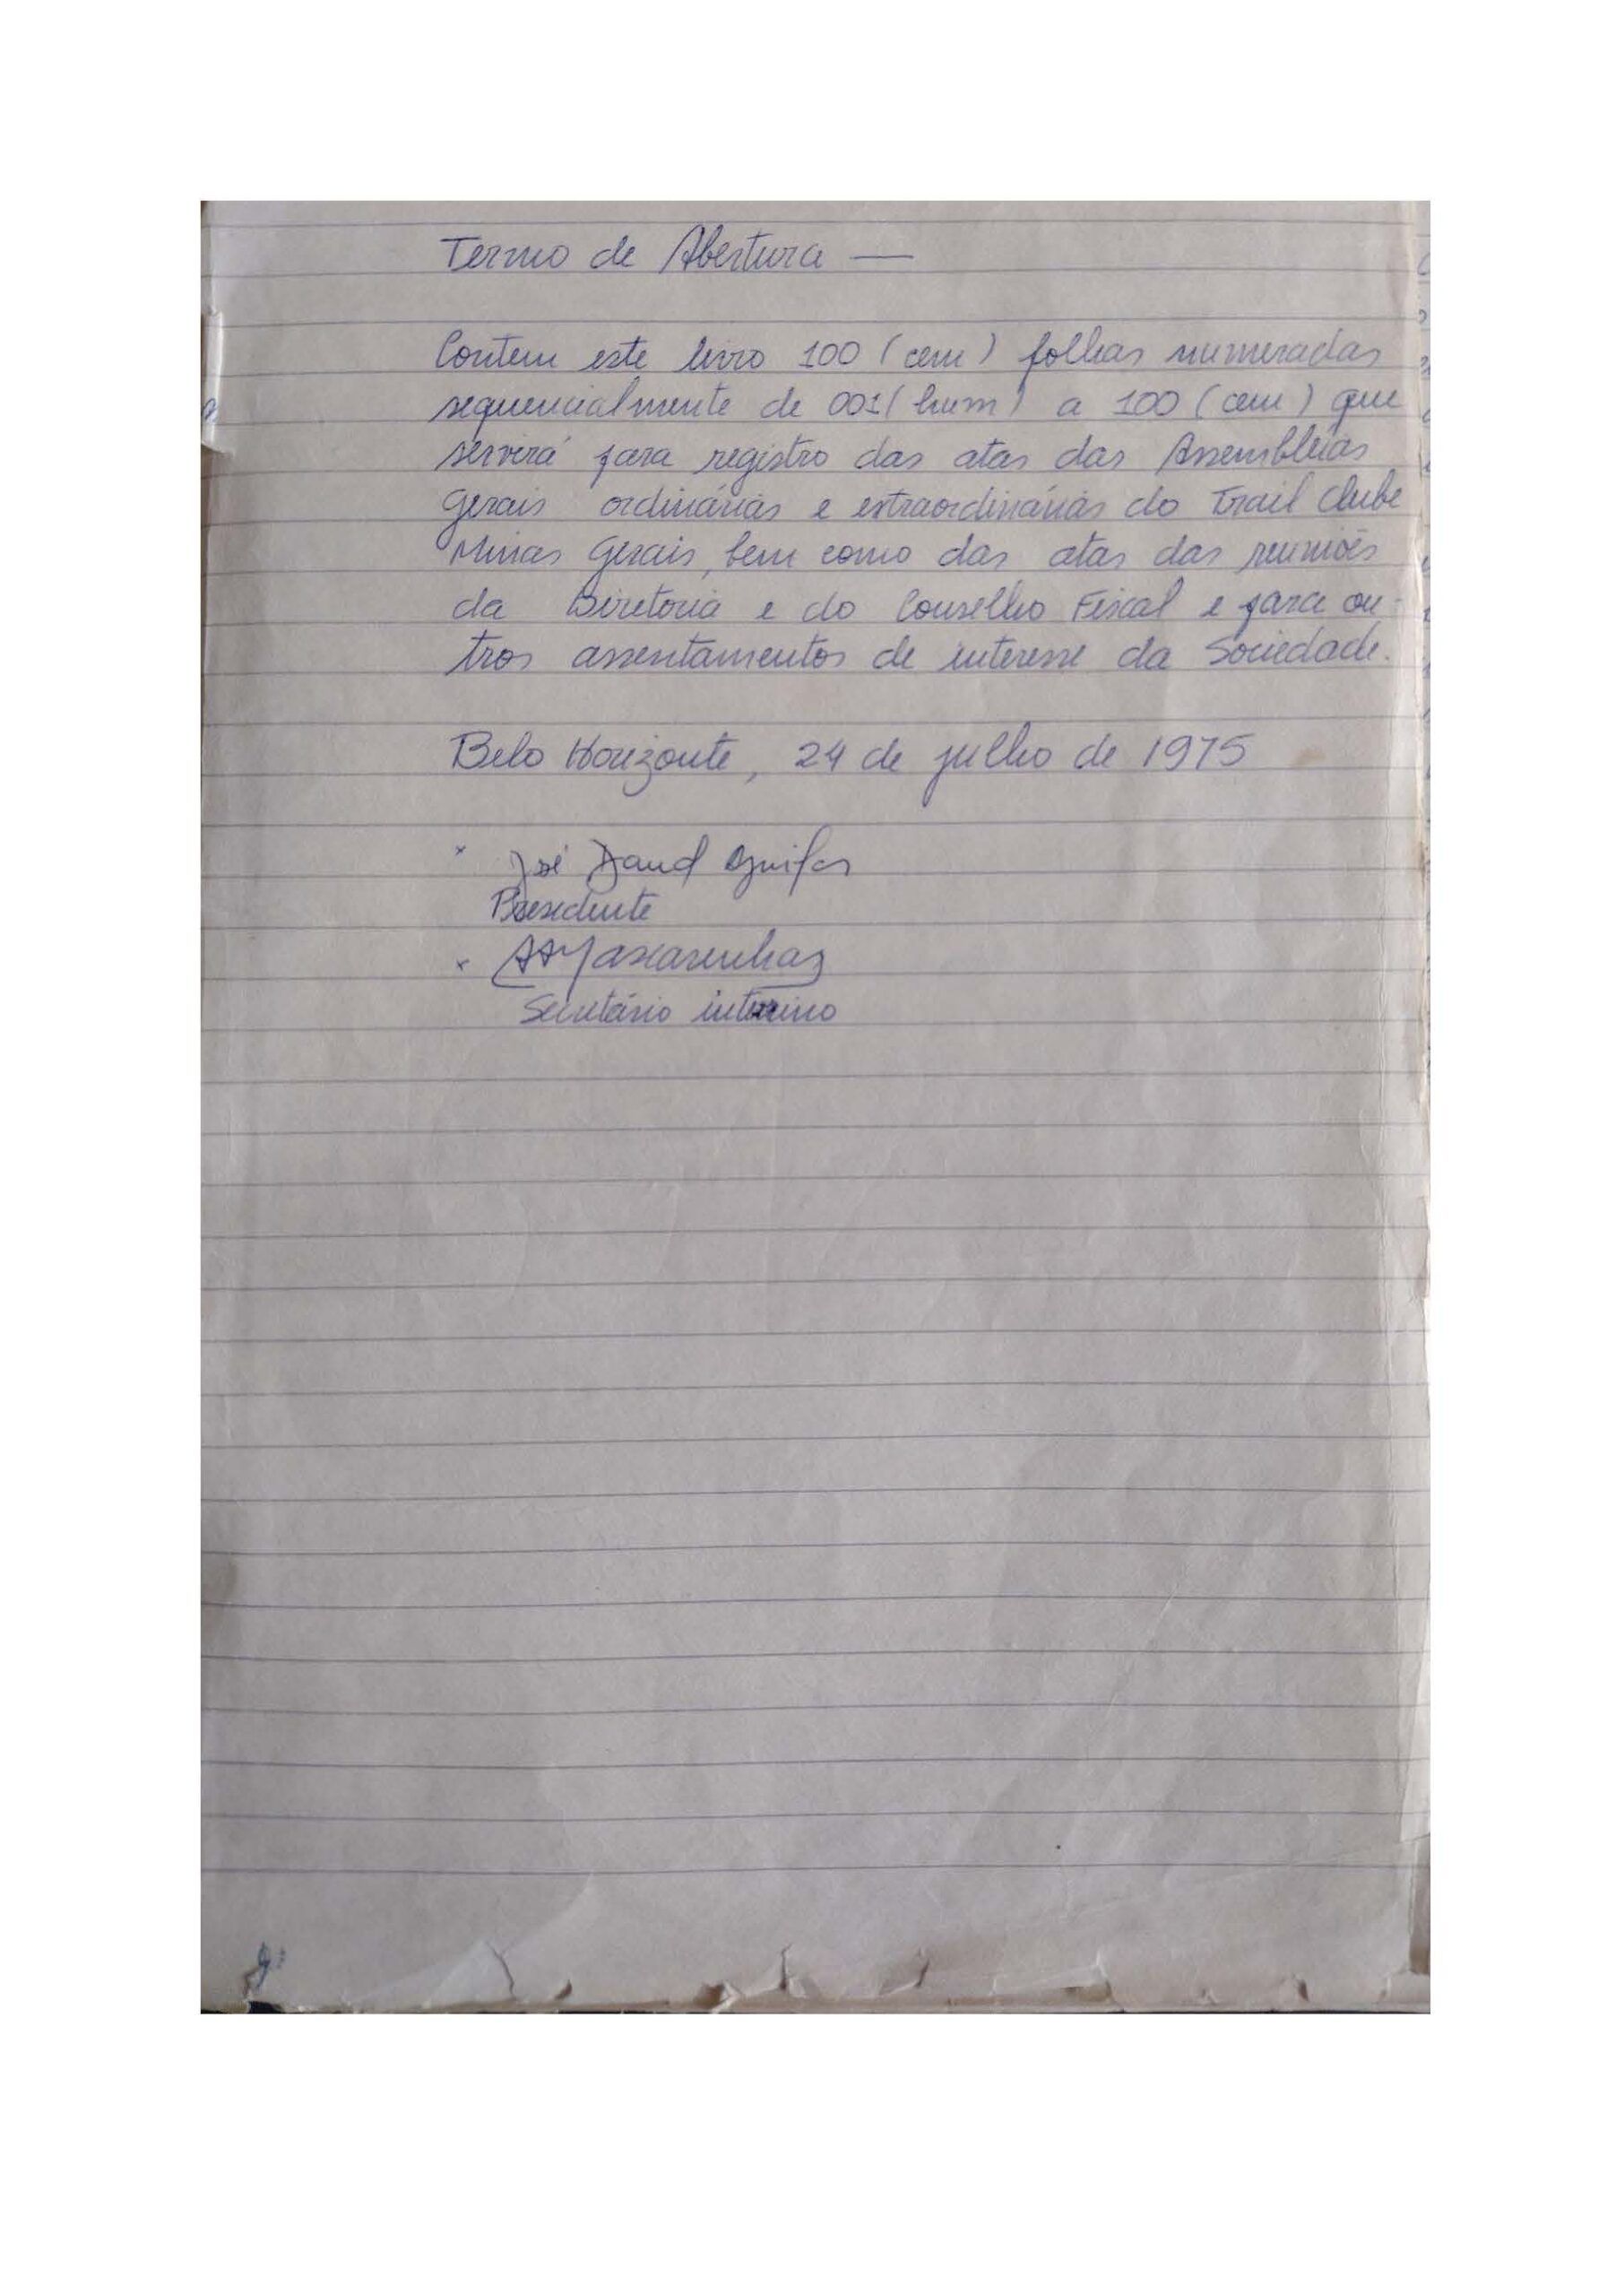 Termo de Abertura —
Contem este livro 100 (cem) folhas numeradas
sequencialmente de 001 (hum) a 100 (cem) que
servirá para registro das atas das Assembleias
Gerais ordinárias e extraordinárias do Trail Clube
Minas Gerais, bem como das atas das reuniões
da Diretoria e do Conselho Fiscal e para ou-
tros assentamentos de interesse da Sociedade.
Belo Horizonte, 24 de julho de 1975
José
Presidente
Mascarenhas
Secretário interino